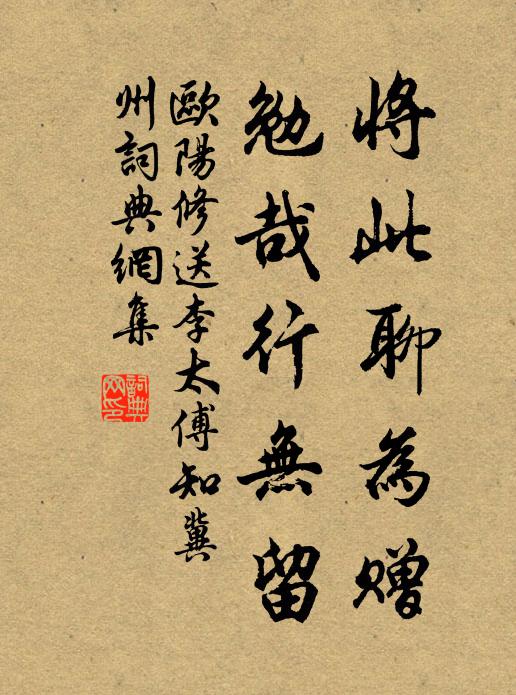 將此聊為贈
勉哉行無留
歐陽修送李太傅知冀
州詞典網集
詞典
网印